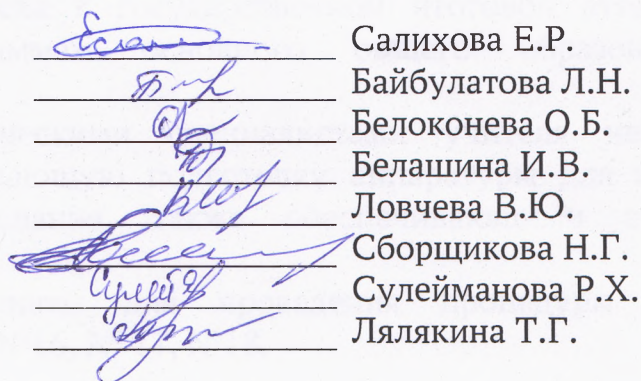 Салихова Е.Р.
Байбулатова Л.Н.
Белоконева О.Б.
Белашина И.В.
Ловчева В.Ю.
Сборщикова Н.Г.
Сулейманова Р.Х.
Лялякина Т.Г.